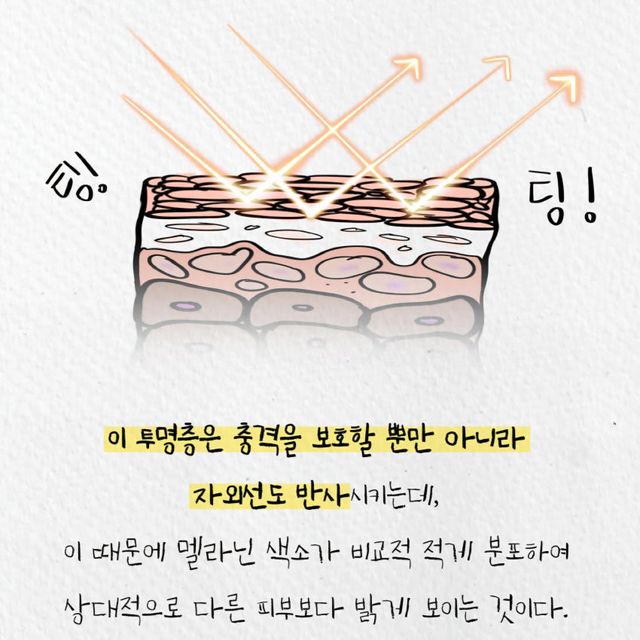 팅!
팅!
이 투명층은 충격을 보호할 뿐만 아니라
자외선도 반사시키는데,
이 때문에 멜라닌 색소가 비교적 적게 분포하여
상대적으로 다른 피부보다 밝게 보이는 것이다.